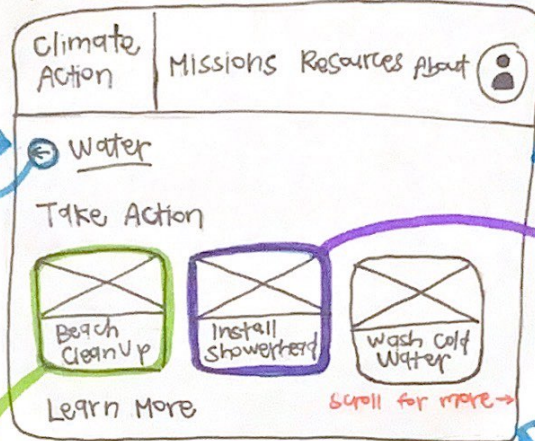 Climate
Action
Missions Resources About
Water
Take Action
Beach
CleanUp
Install
Showerhead
Wash Cold
Water
Scroll for more→
Learn More